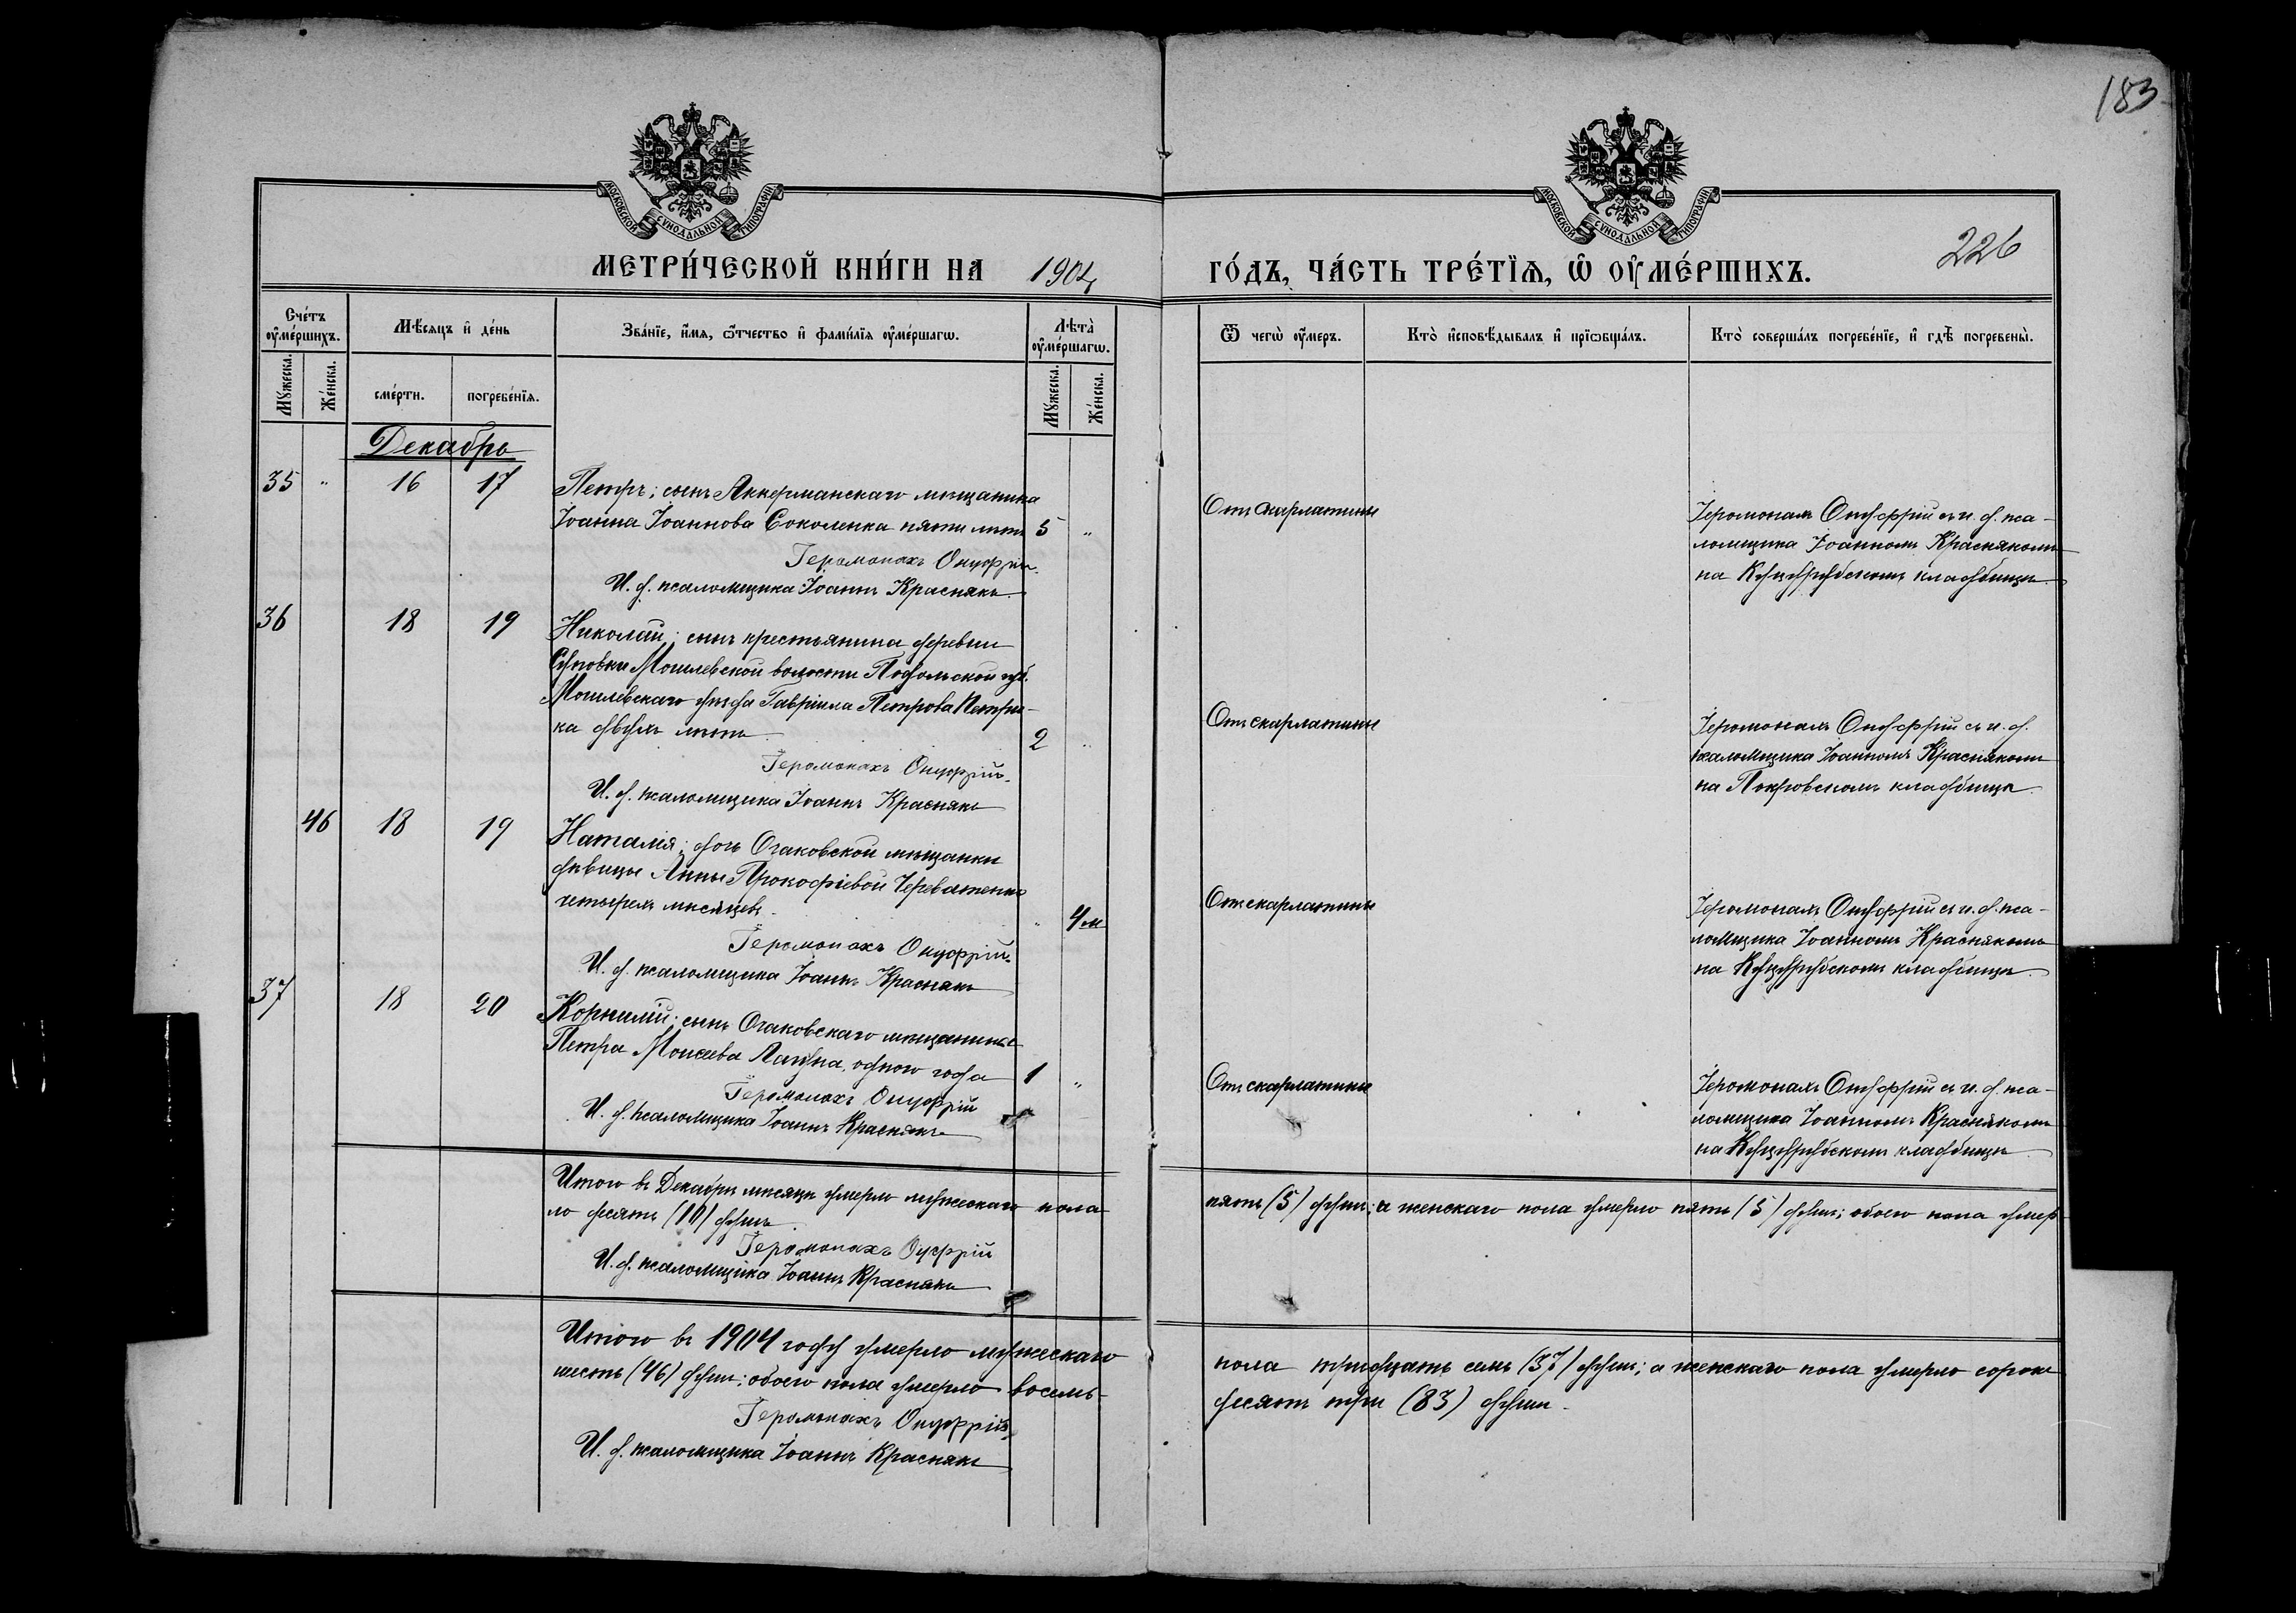 183
МОСКОВСКОЙ СѴНОДАЛЬНОЙ ТИПОГРАФІИ
МОСКОВСКОЙ СѴНОДАЛЬНОЙ ТИПОГРАФІИ
МЕТРИ́ЧЕСКОЙ КНИ́ГИ НА 1904
ГО́ДЪ, ЧА́СТЬ ТРЕ́ТЇѦ, Ѡ҆ ОУ҆МЕ́РШИХЪ.
226
Сче́тъ оу҆ме́ршихъ.
Мѣ́сяцъ и҆ де́нь
Зва́нїе, и҆́мя, ѻ҆́тчество и҆ фами́лїя оу҆ме́ршагѡ.
Лѣта̀ оу҆ме́ршагѡ.
Ѿ чегѡ̀ оу҆́меръ.
Кто̀ и҆сповѣ́дывалъ и҆ прїѡбща́лъ.
Кто̀ соверша́лъ погребе́нїе, и҆ гдѣ̀ погребены̀.
Мꙋ́жеска.
Же́нска.
сме́рти.
погребе́нїя.
Мꙋ́жеска.
Же́нска.
Декабрь
35 " 16 17 Петръ; сынъ Аккерманскаго мѣщанина
Іоанна Іоаннова Соколенка пяти лѣтъ 5 "
Іеромонахъ Онуфрій.
И. д. псаломщика Іоаннъ Краснякъ
Отъ скарлатины
Іеромонахъ Онуфрій съ и. д. пса-
ломщика Іоанномъ Краснякомъ
на Куцурубскомъ кладбищѣ.
36 18 19 Николай; сынъ крестьянина деревни
Суповки Могилевской волости Подольской губ.
Могилевскаго уѣзда Гавріила Петрова Петри-
ка двухъ лѣтъ 2 "
Іеромонахъ Онуфрій.
И. д. псаломщика Іоаннъ Краснякъ
Отъ скарлатины
Іеромонахъ Онуфрій съ и. д.
псаломщика Іоанномъ Краснякомъ
на Покровскомъ кладбищѣ.
46 18 19 Наталія; дочь Очаковской мѣщанки
дѣвицы Анны Прокофіевой Череватенко
четырехъ мѣсяцевъ. " 4 м
Іеромонахъ Онуфрій.
И. д. псаломщика Іоаннъ Краснякъ
Отъ скарлатины
Іеромонахъ Онуфрій съ и. д. пса-
ломщика Іоанномъ Краснякомъ
на Куцурубскомъ кладбищѣ.
37 18 20 Корнилій; сынъ Очаковскаго мѣщанина
Петра Моисеева одного года 1 "
Іеромонахъ Онуфрій
И. д. псаломщика Іоаннъ Краснякъ
Отъ скарлатины
Іеромонахъ Онуфрій съ и. д. пса-
ломщика Іоанномъ Краснякомъ
на Куцурубскомъ кладбищѣ.
Итого въ Декабрѣ мѣсяцѣ умерло мужескаго пола пять (5) душъ; а женскаго пола умерло пять (5) душъ; обоего пола умер-
ло десять (10) душъ.
Іеромонахъ Онуфрій
И. д. псаломщика Іоаннъ Краснякъ
Итого въ 1904 году умерло мужескаго пола тридцать семь (37) душъ; а женскаго пола умерло сорокъ
шесть (46) душъ; обоего пола умерло восемь- десятъ три (83) души.
Іеромонахъ Онуфрій.
И. д. псаломщика Іоаннъ Краснякъ